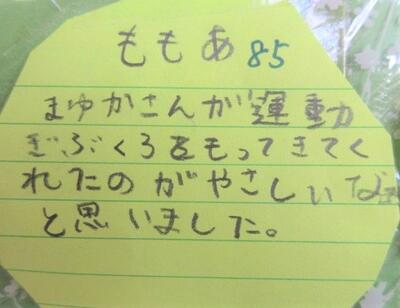 ももあ 85
まゆかさんが運動
ぎぶくろをもってきてく
れたのがやさしいなぁ
と思いました。